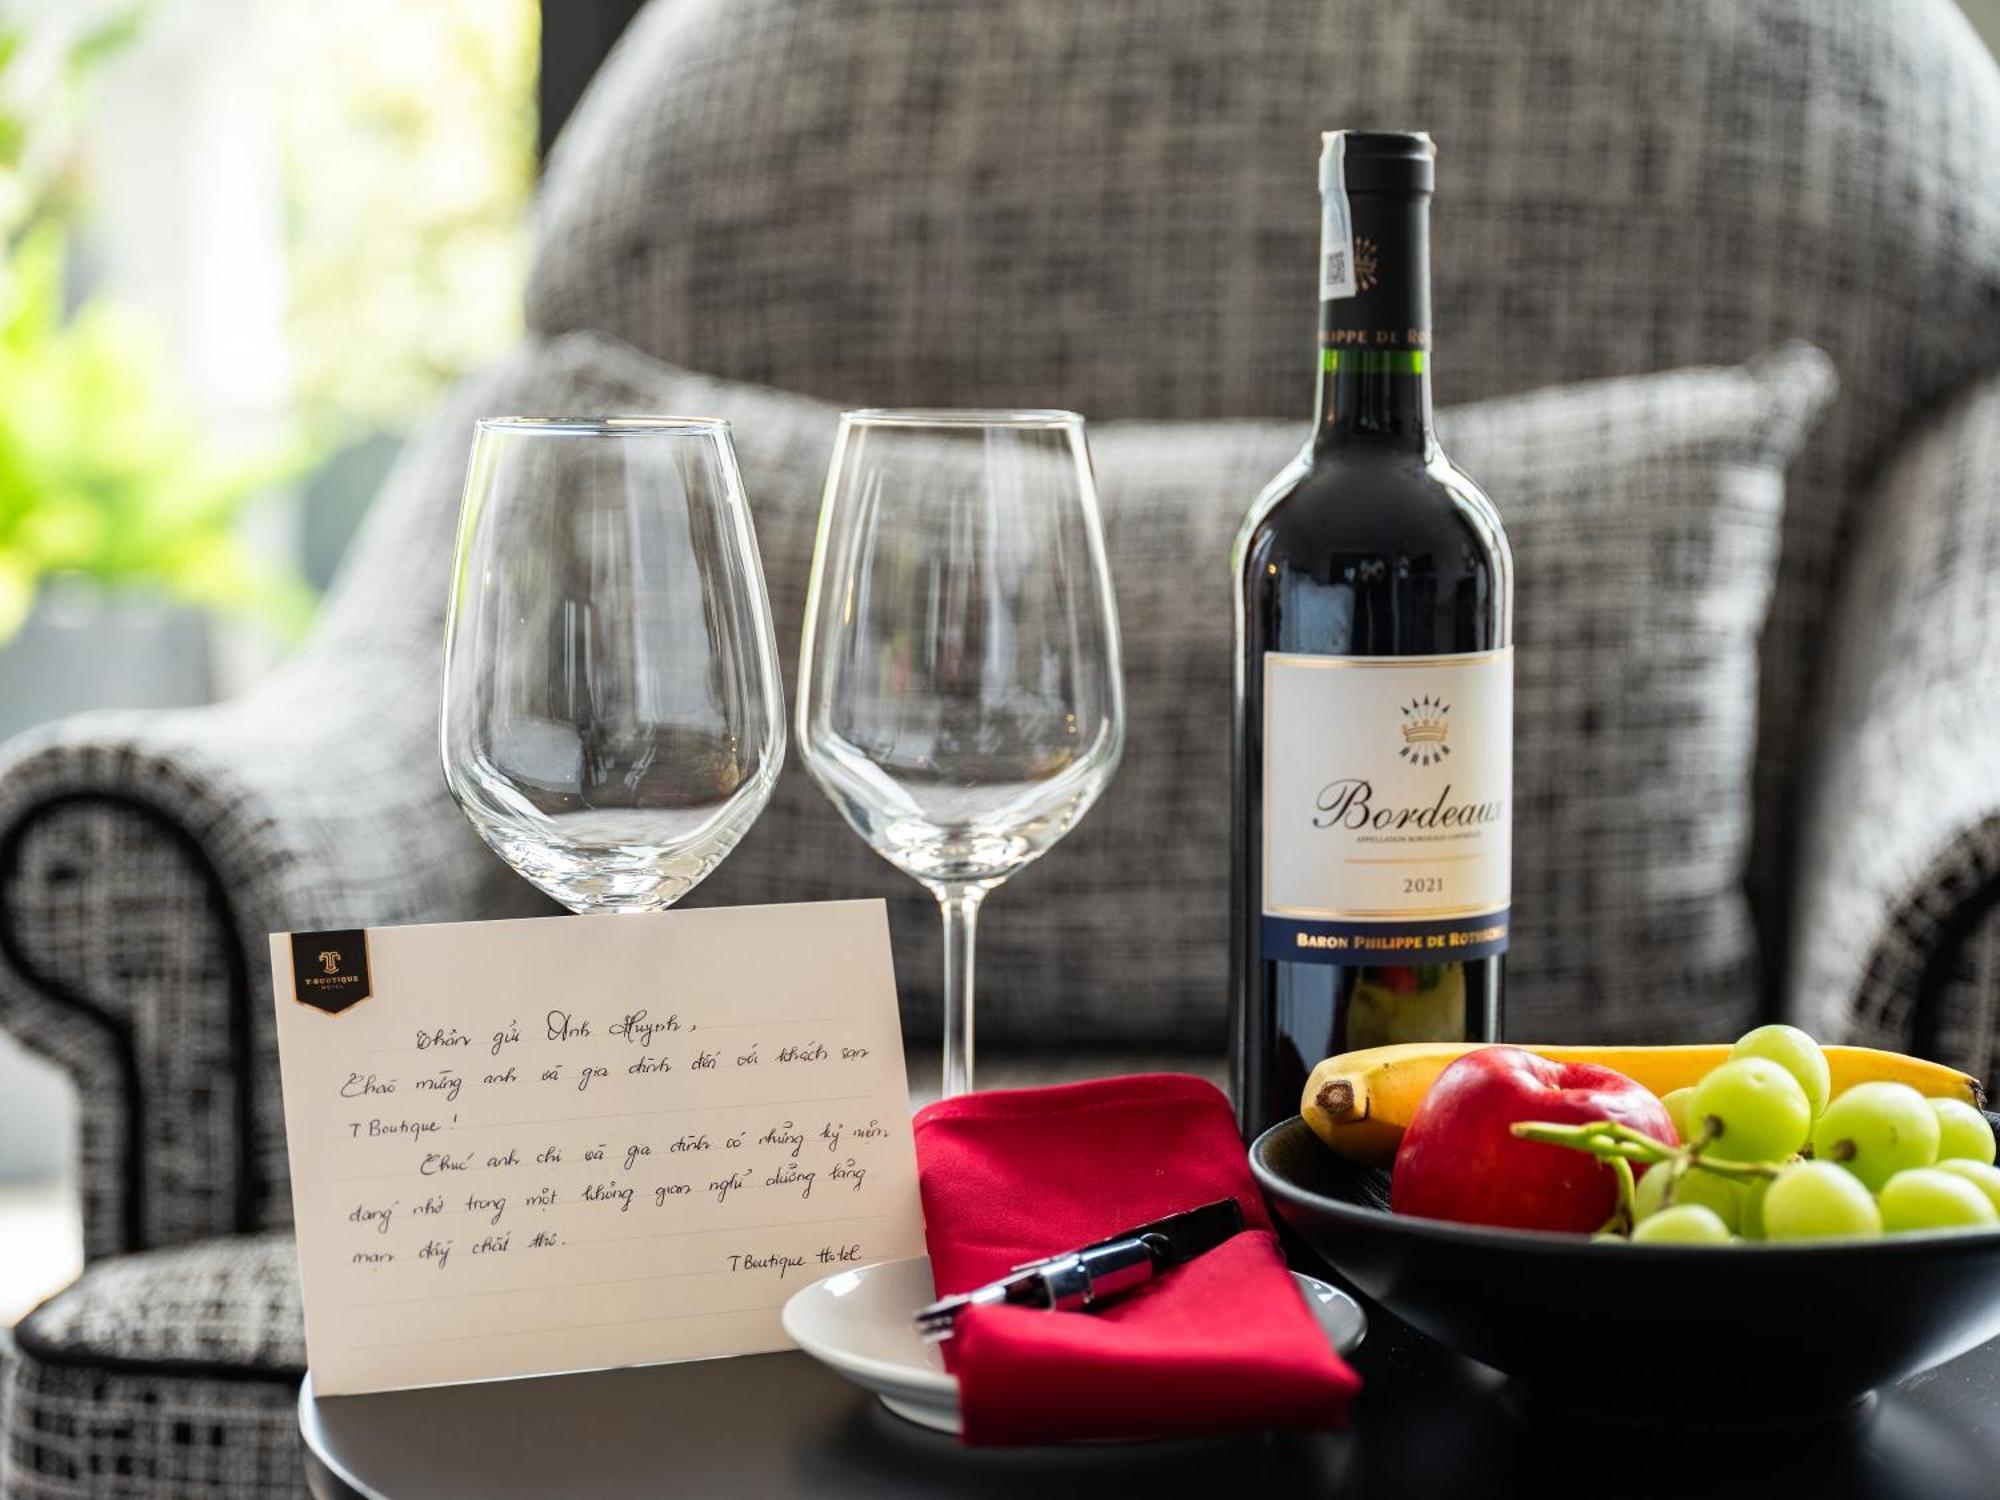 T-BOUTIQUE
HOTEL
Thân gửi Anh Huynh,
Chào mừng anh và gia đình đến với khách sạn
T Boutique !
Chúc anh chị và gia đình có những kỷ niệm
đáng nhớ trong một không gian nghỉ dưỡng lãng
mạn đầy chất thơ.
T Boutique Hotel
LIPPE DE RO
Bordeaux
APPELLATION BORDEAUX CONTRÔLÉE
2021
BARON PHILIPPE DE ROTHSCHILD